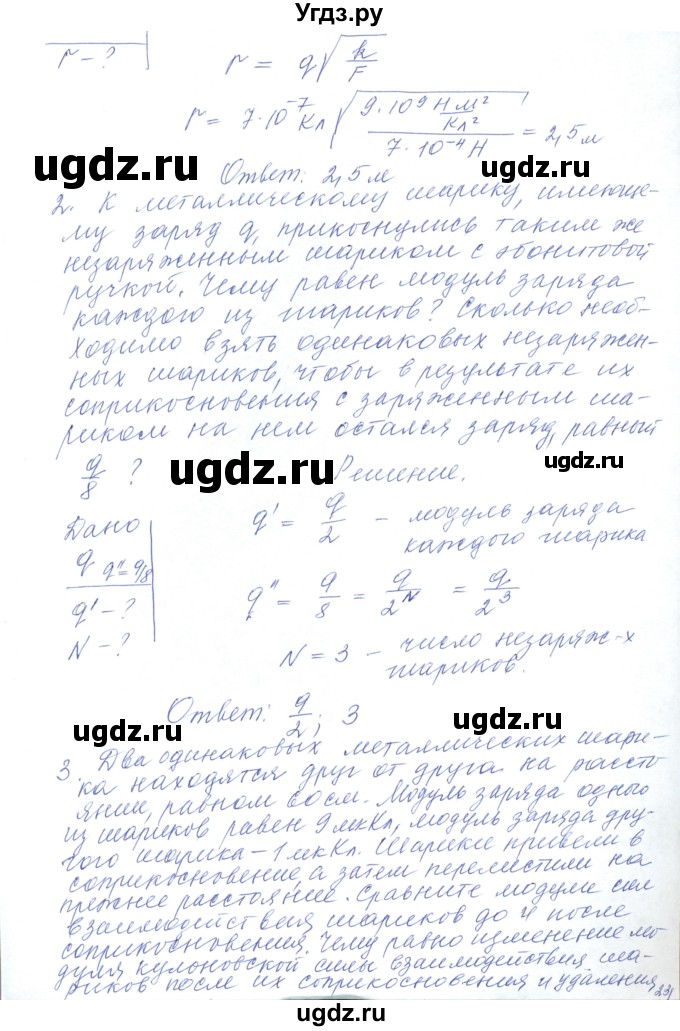 Угдз.ру
r - ?
r = q√(k/F)
r = 7·10⁻⁷ Кл √(9·10⁹ Н м²/Кл² / 7·10⁻⁴ Н) = 2,5 м
Ответ: 2,5 м
2. К металлическому шарику, имеюще-
му заряд q, прикоснулись таким же
незаряженным шариком с эбонитовой
ручкой. Чему равен модуль заряда
каждого из шариков? Сколько необ-
ходимо взять одинаковых незаряжен-
ных шариков, чтобы в результате их
соприкосновения с заряженным ша-
риком на нем остался заряд, равный
q/8 ? Решение.
Дано
q q''=q/8
q' - ?
N - ?
q' = q/2 - модуль заряда
каждого шарика
q'' = q/8 = q/2ᴺ = q/2³
N = 3 - число незаряж-х
шариков.
Ответ: q/2; 3
3. Два одинаковых металлических шари-
ка находятся друг от друга на рассто-
яние, равном 60 см. Модуль заряда одного
из шариков равен 9 мкКл, модуль заряда дру-
гого шарика - 1 мкКл. Шарики привели в
соприкосновение, а затем переместили на
прежнее расстояние. Сравните модули сил
взаимодействия шариков до и после
соприкосновения. Чему равно изменение мо-
дуля кулоновской силы взаимодействия ша-
риков после их соприкосновения и удаления
231
ugdz.ru
ugdz.ru
ugdz.ru
ugdz.ru
ugdz.ru
ugdz.ru
ugdz.ru
ugdz.ru